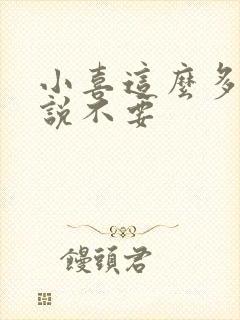 小喜這麼多
說不要
饅頭君